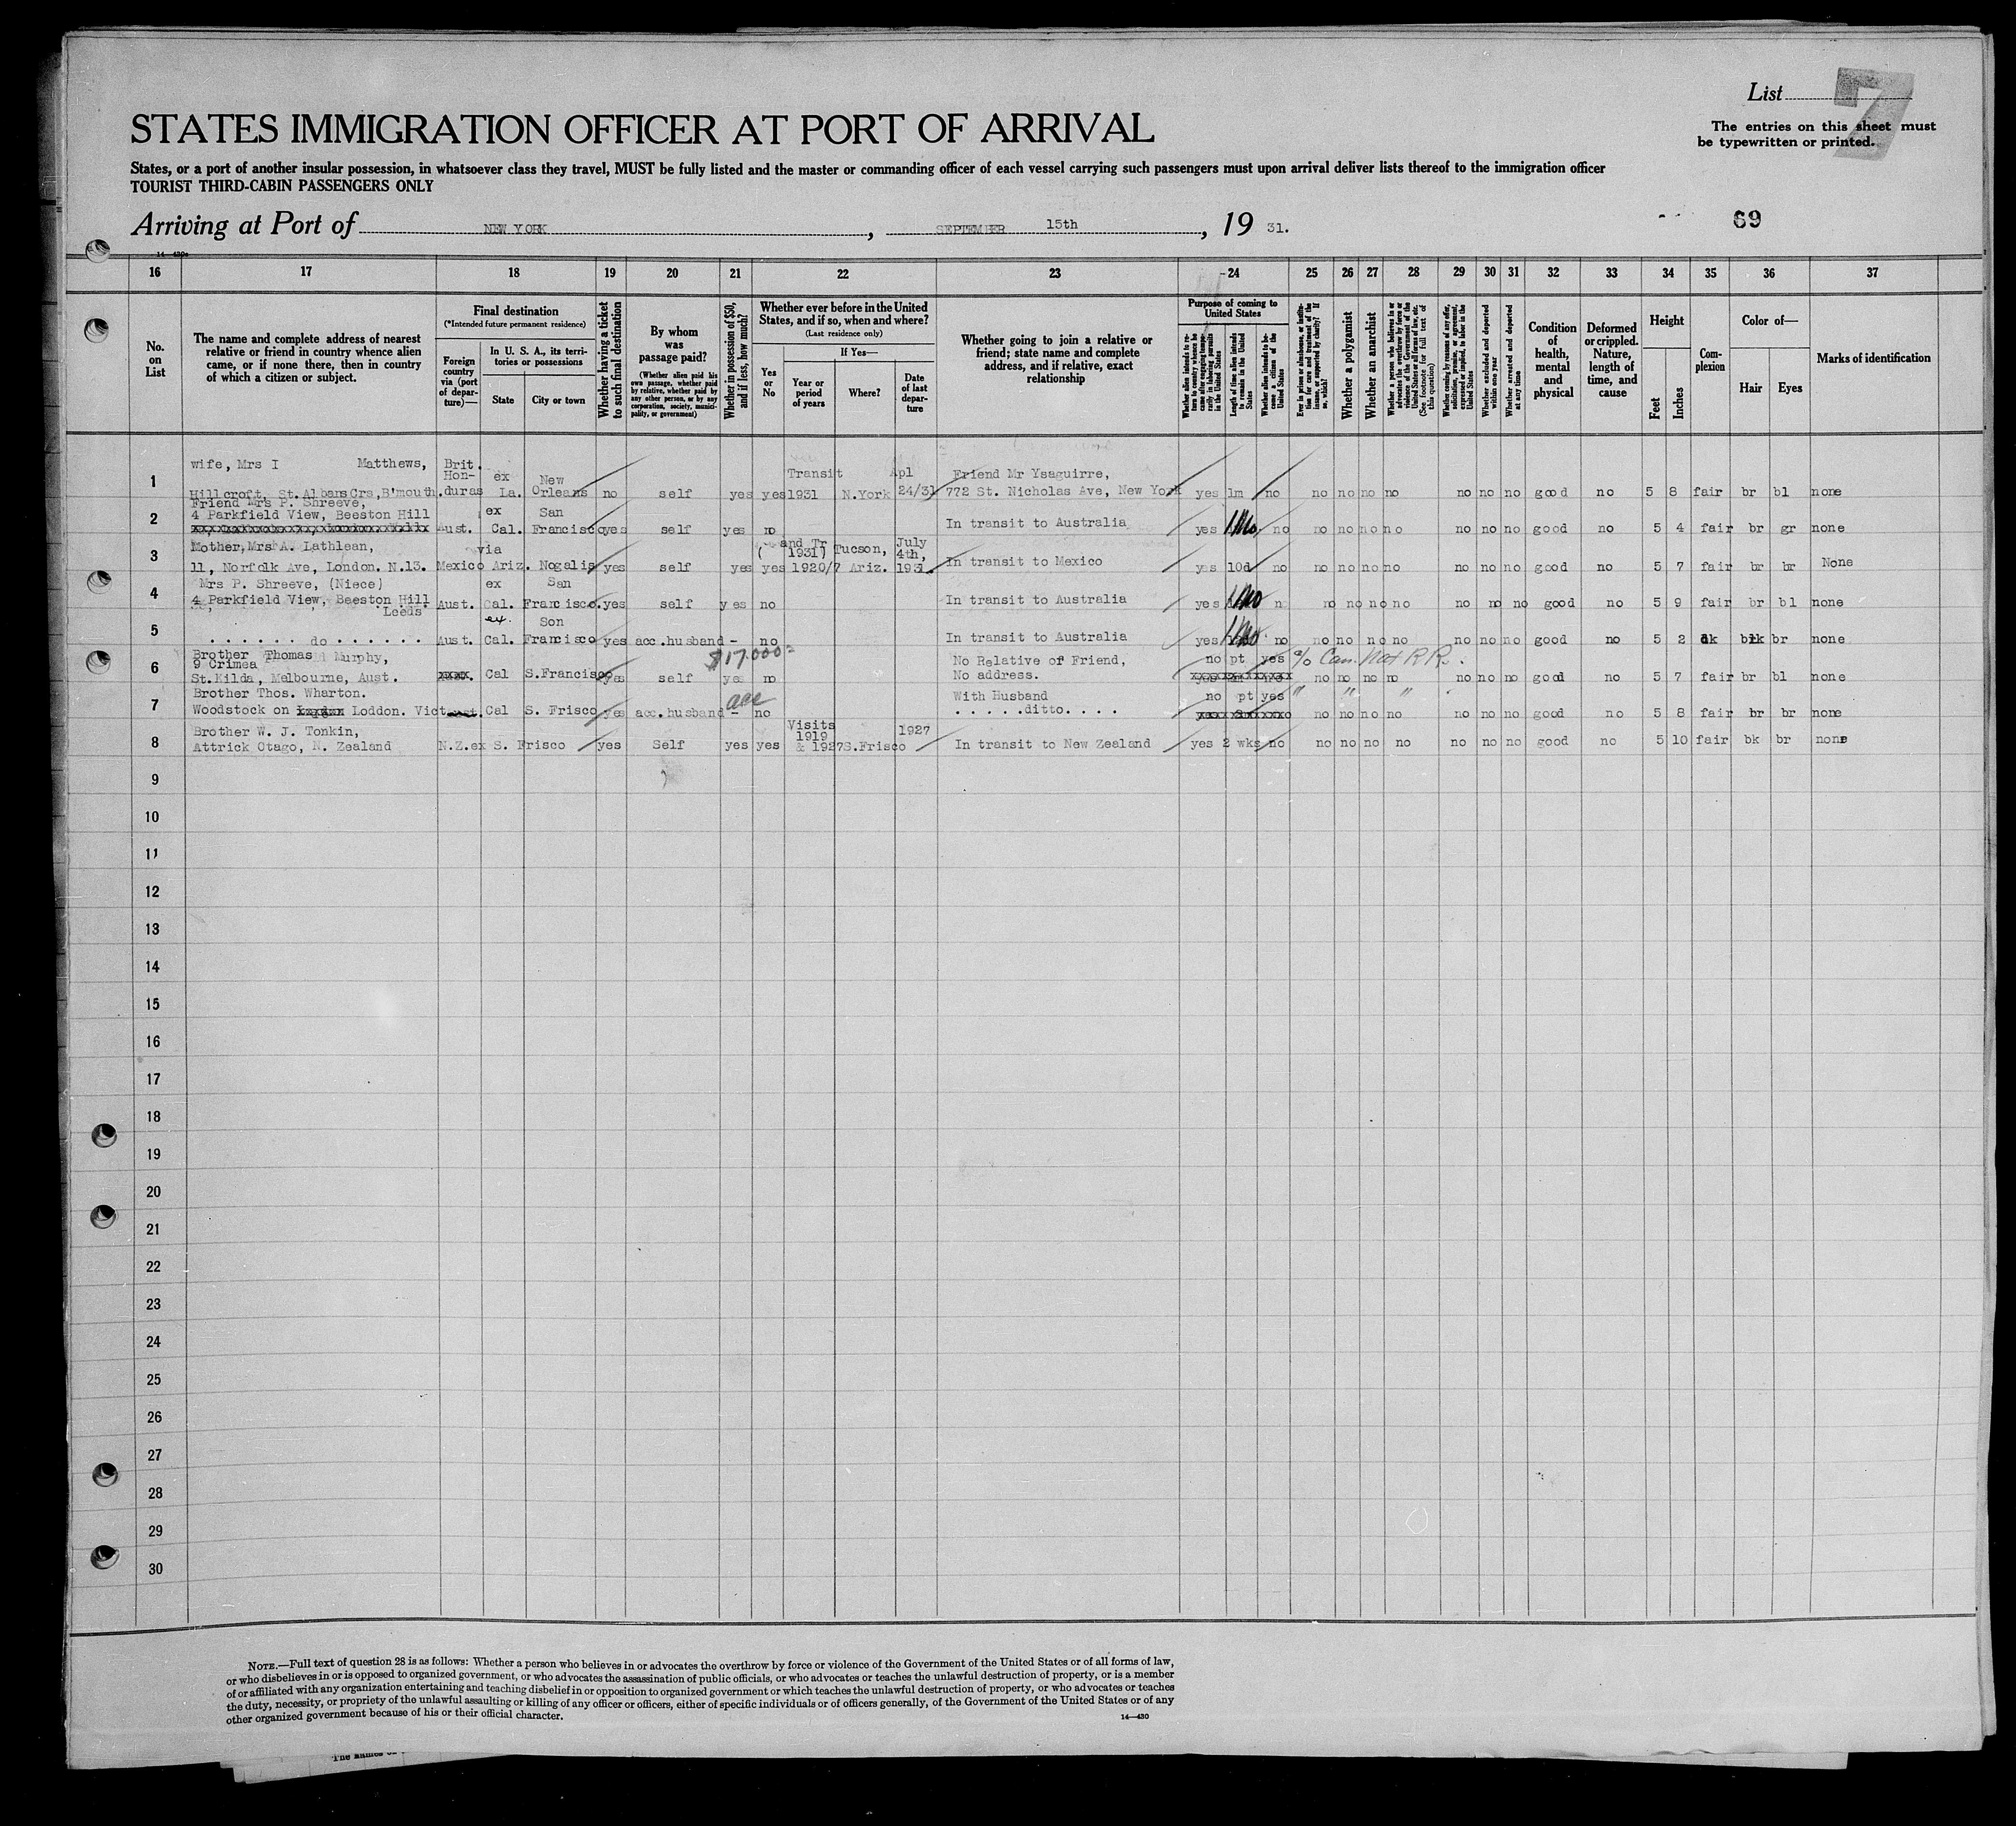 List 7
STATES IMMIGRATION OFFICER AT PORT OF ARRIVAL
The entries on this sheet must
be typewritten or printed.
States, or a port of another insular possession, in whatsoever class they travel, MUST be fully listed and the master or commanding officer of each vessel carrying such passengers must upon arrival deliver lists thereof to the immigration officer
TOURIST THIRD-CABIN PASSENGERS ONLY
Arriving at Port of NEW YORK, SEPTEMBER 15th, 19 31.
69
14—430a
16 17 18 19 20 21 22 23 24 25 26 27 28 29 30 31 32 33 34 35 36 37
No. on List
The name and complete address of nearest relative or friend in country whence alien came, or if none there, then in country of which a citizen or subject.
Final destination
(*Intended future permanent residence)
Foreign country via (port of departure)—
In U. S. A., its territories or possessions
State
City or town
Whether having a ticket to such final destination
By whom was passage paid?
(Whether alien paid his own passage, whether paid by relative, whether paid by any other person, or by any corporation, society, municipality, or government)
Whether in possession of $50, and if less, how much?
Whether ever before in the United States, and if so, when and where?
(Last residence only)
Yes or No
If Yes—
Year or period of years
Where?
Date of last departure
Whether going to join a relative or friend; state name and complete address, and if relative, exact relationship
Purpose of coming to United States
Whether alien intends to return to country whence he came after engaging temporarily in laboring pursuits in the United States
Length of time alien intends to remain in the United States
Whether alien intends to become a citizen of the United States
Ever in prison or almshouse, or institution for care and treatment of the insane, or supported by charity? If so, which?
Whether a polygamist
Whether an anarchist
Whether a person who believes in or advocates the overthrow by force or violence of the Government of the United States or all forms of law, etc. (See footnote for full text of this question)
Whether coming by reason of any offer, solicitation, promise, or agreement, expressed or implied, to labor in the United States
Whether excluded and deported within one year
Whether arrested and deported at any time
Condition of health, mental and physical
Deformed or crippled. Nature, length of time, and cause
Height
Feet
Inches
Complexion
Color of—
Hair
Eyes
Marks of identification
wife, Mrs I Matthews, Brit. Hon- ex New Transit Apl Friend Mr Ysaguirre,
1 Hillcroft, St.Albans Crs, B'mouth. duras La. Orleans no self yes yes 1931 N.York 24/31 772 St. Nicholas Ave, New York yes 1m no no no no no no no no good no 5 8 fair br bl none
Friend Mrs P. Shreeve,
2 4 Parkfield View, Beeston Hill ex San
Aust. Cal. Francisco yes self yes no In transit to Australia yes 1Mo. no no no no no no no no good no 5 4 fair br gr none
Mother, Mrs A. Lathlean, via (and Tr 1931) Tucson, July 4th,
3 11, Norfolk Ave, London. N.13. Mexico Ariz. Nogalis yes self yes yes 1920/7 Ariz. 1931. In transit to Mexico yes 10d no no no no no no no no good no 5 7 fair br br None
Mrs P. Shreeve, (Niece) ex San
4 4 Parkfield View, Beeston Hill Leeds Aust. Cal. Francisco. yes self yes no In transit to Australia yes 1Mo n no no no no no no no good no 5 9 fair br bl none
ex. Son
5 . . . . . . do . . . . . . Aust. Cal. Francisco yes acc.husband - no In transit to Australia yes 1Mo. no no no no no no no no good no 5 2 dk blk br none
Brother Thomas Murphy, $17.000= No Relative of Friend, no pt yes c/o Can. Nat R R.
6 9 Crimea
St.Kilda, Melbourne, Aust. Cal S.Francisco yes self yes no No address. no no no no no no no good no 5 7 fair br bl none
Brother Thos. Wharton. acc With Husband no pt yes " " "
7 Woodstock on Loddon. Vict Cal S. Frisco yes acc.husband - no . . . . .ditto. . . . no no no no no no no good no 5 8 fair br br none
Brother W. J. Tonkin, Visits 1919 1927
8 Attrick Otago, N. Zealand N.Z. ex S. Frisco yes Self yes yes & 1927 S.Frisco In transit to New Zealand yes 2 wks no no no no no no no no good no 5 10 fair bk br none
9
10
11
12
13
14
15
16
17
18
19
20
21
22
23
24
25
26
27
28
29
30
NOTE.—Full text of question 28 is as follows: Whether a person who believes in or advocates the overthrow by force or violence of the Government of the United States or of all forms of law,
or who disbelieves in or is opposed to organized government, or who advocates the assassination of public officials, or who advocates or teaches the unlawful destruction of property, or is a member
of or affiliated with any organization entertaining and teaching disbelief in or opposition to organized government or which teaches the unlawful destruction of property, or who advocates or teaches
the duty, necessity, or propriety of the unlawful assaulting or killing of any officer or officers, either of specific individuals or of officers generally, of the Government of the United States or of any
other organized government because of his or their official character.
14—430